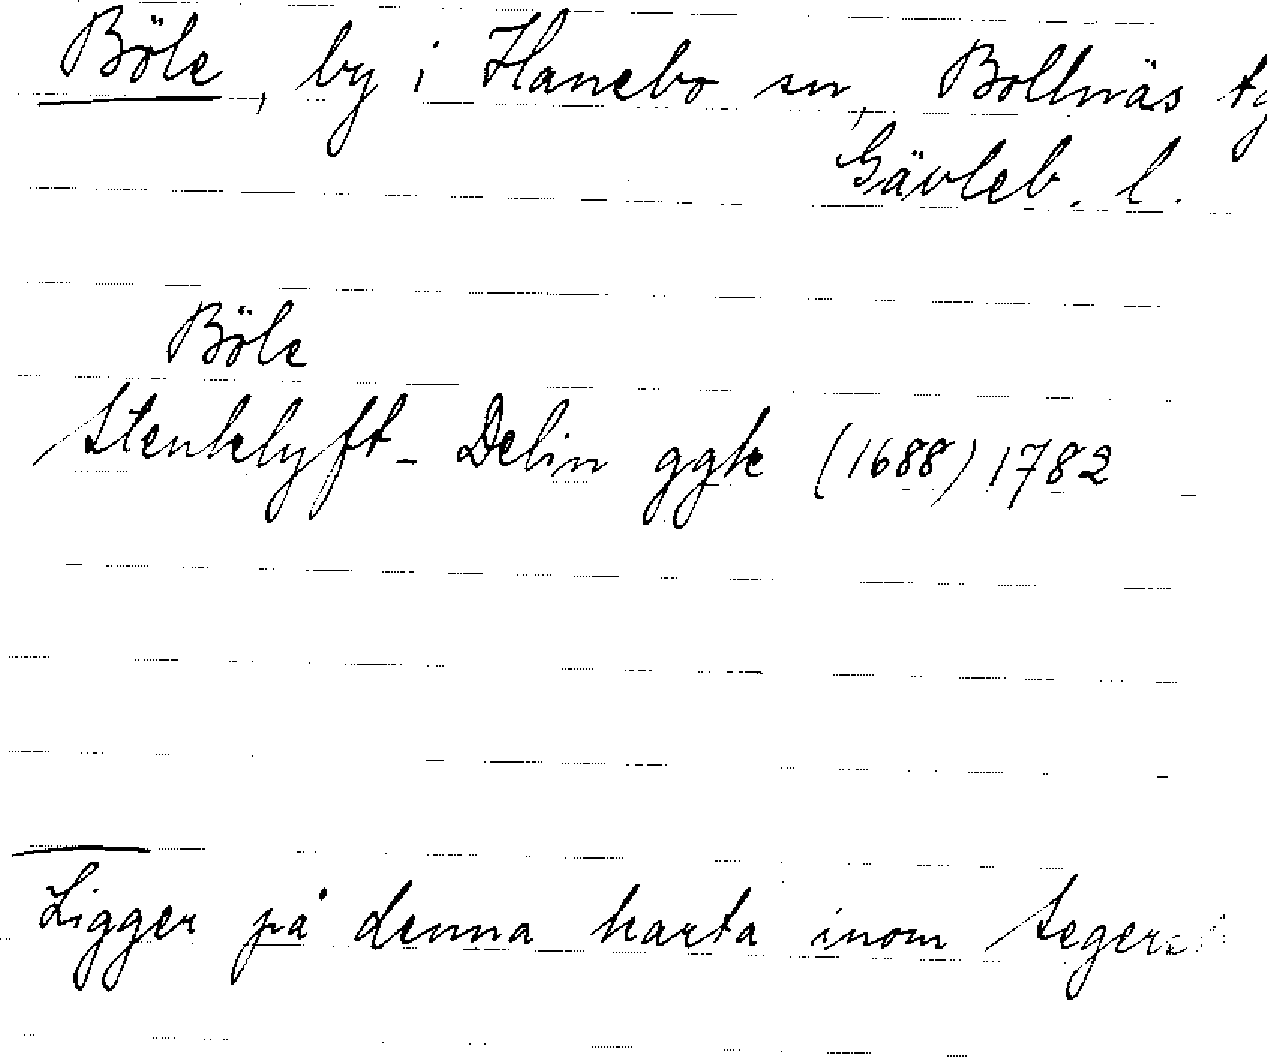 Böle, by i Hanebo sn, Bollnäs tg
Gävleb. l.
Böle
Stenklyft - Delin ggk (1688) 1782
Ligger på denna karta inom